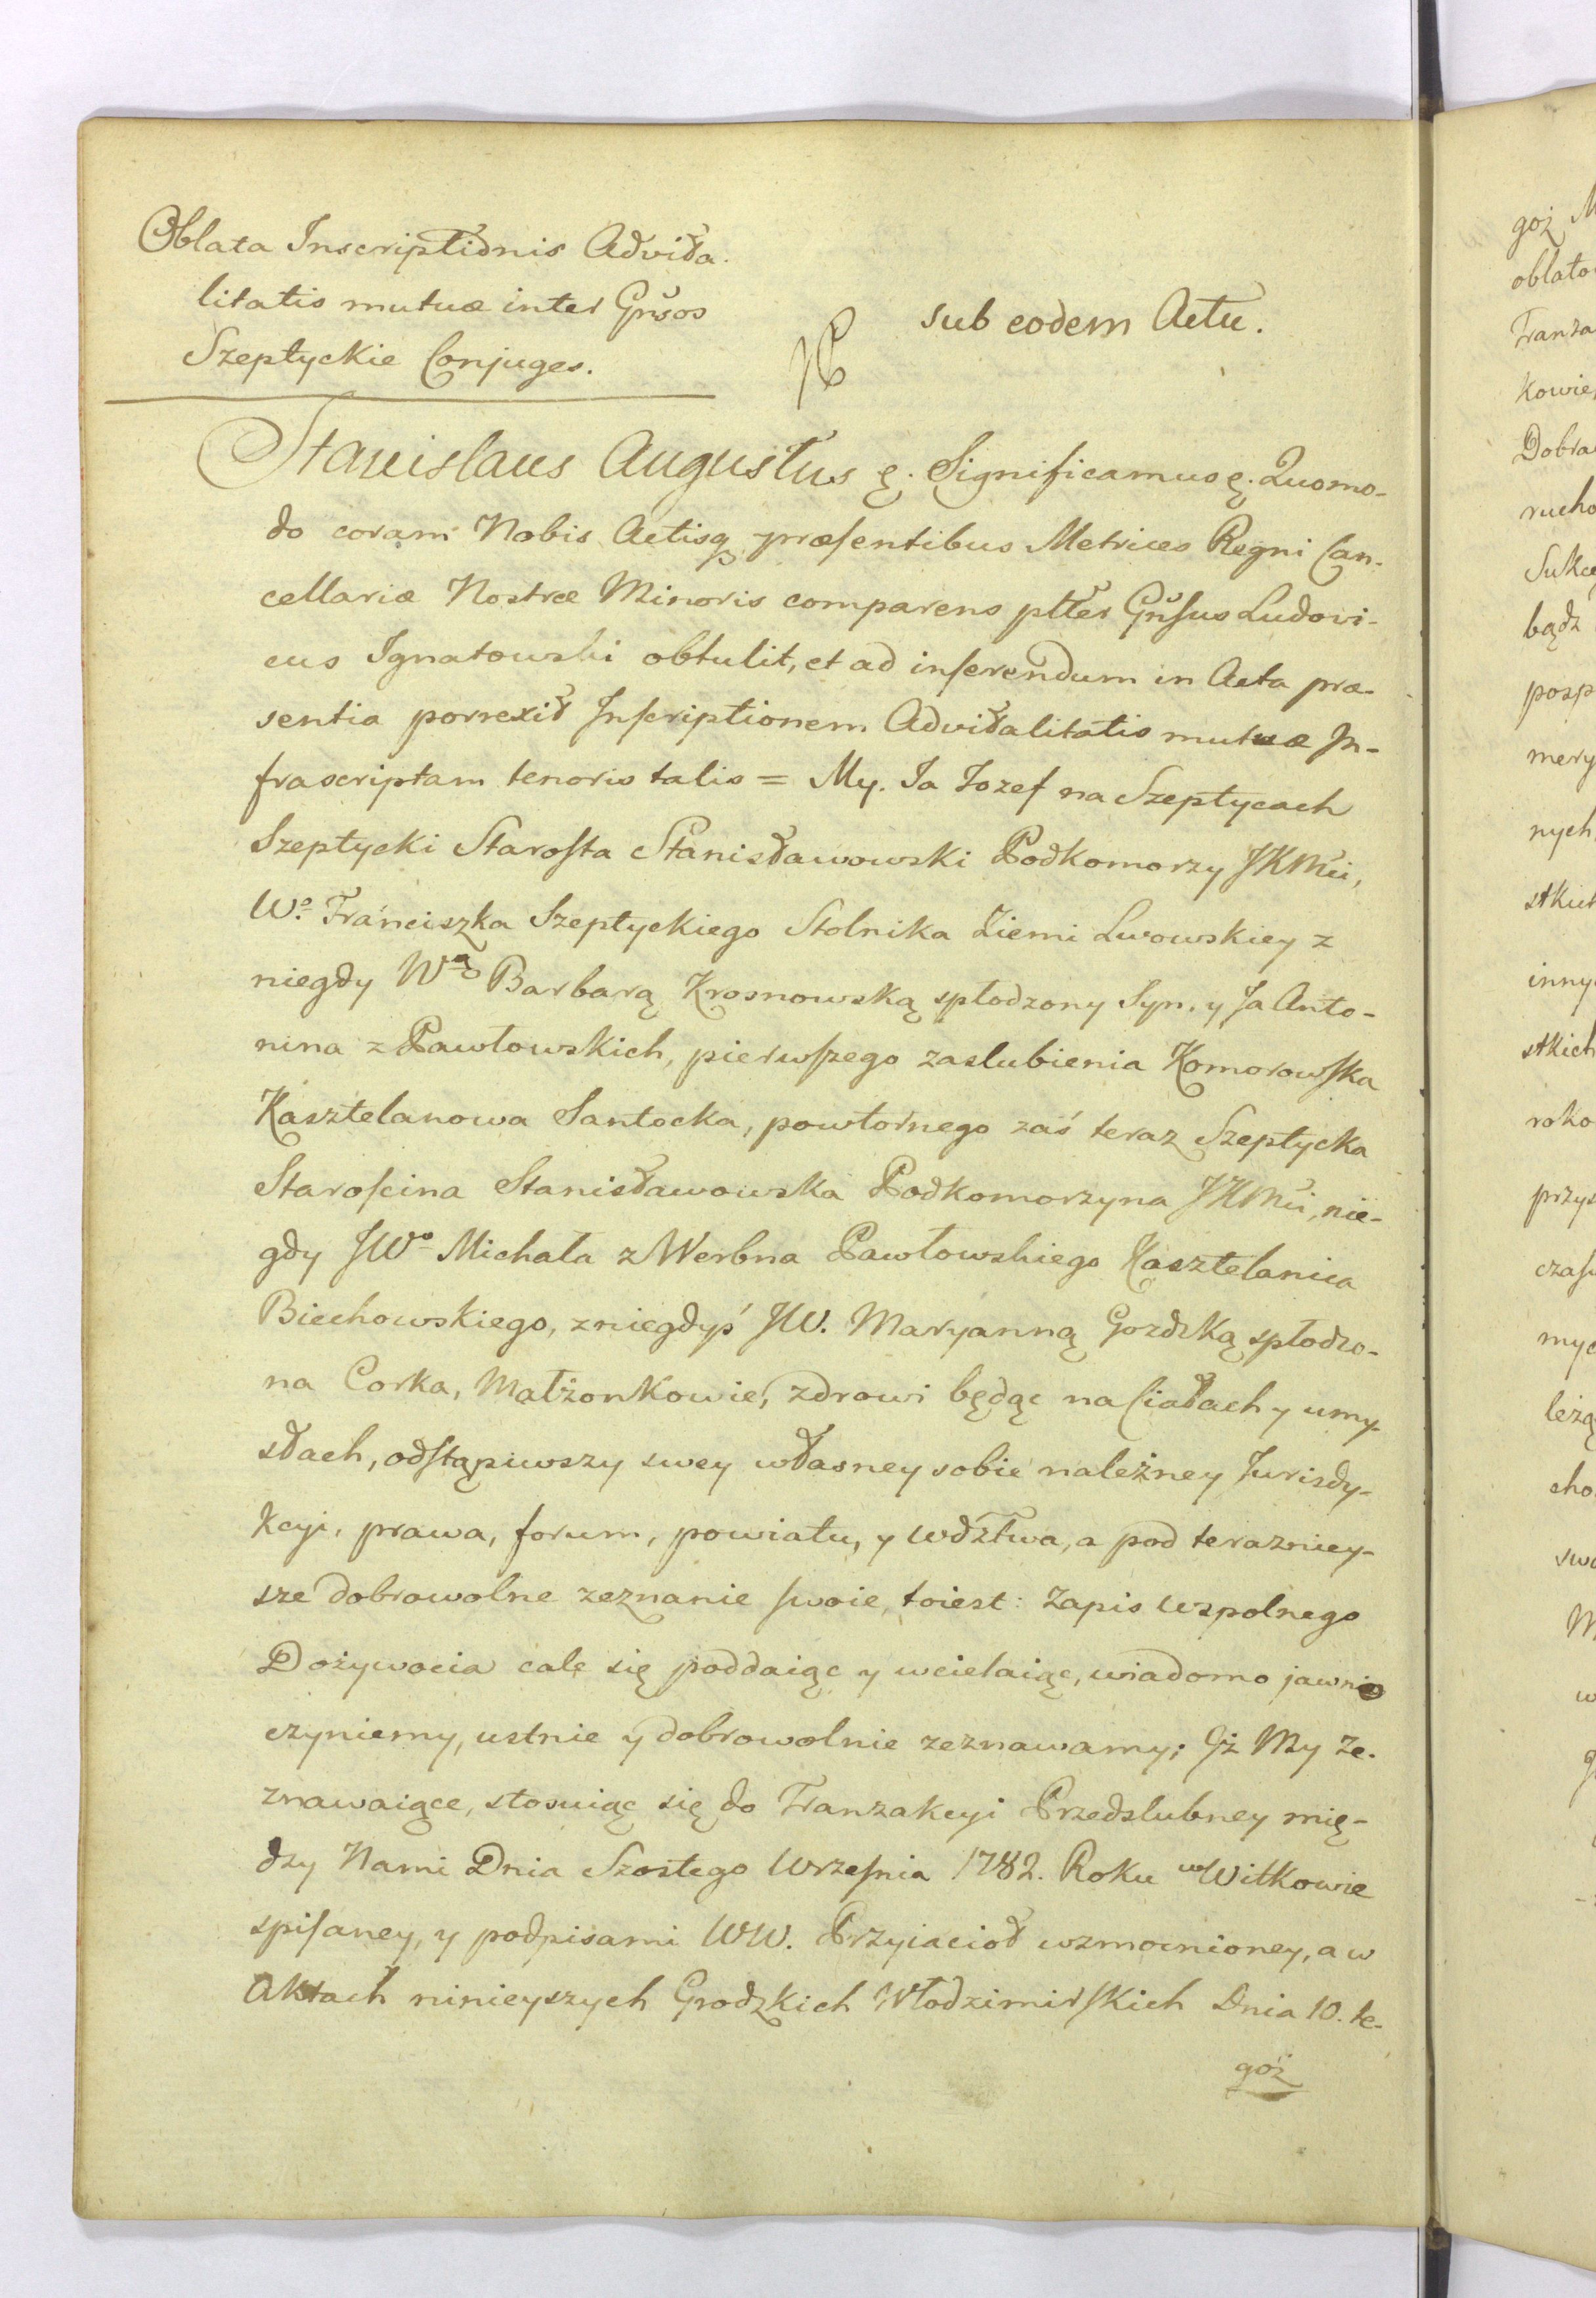 Oblata Inscriptionis Advita-
litatis mutuæ inter Gnsos
Szeptyckie Conjuges.
sub eodem Actu.
Stanislaus Augustus &. Significamus &. Quomo-
do coram Nobis Actisq præsentibus Metrices Regni Can-
cellariæ Nostræ Minoris comparens ptter Gnsus Ludovi-
cus Ignatowski obtulit, et ad inserendum in Acta præ-
sentia porrexit Inscriptionem Advitalitatis mutuæ In-
frascriptam tenoris talis = My. Ja Jozef na Szeptycach
Szeptycki Starosta Stanisławowski Podkomorzy JKMci,
Wo. Franciszka Szeptyckiego Stolnika Ziemi Lwowskiey z
niegdy Wą Barbarą Krosnowską spłodzony Syn. y Ja Anto-
nina z Pawłowskich, pierwszego zaslubienia Komorowska
Kasztelanowa Santocka, powtornego zaś teraz Szeptycka
Starościna Stanisławowska Podkomorzyna JKMci, nie-
gdy JWo Michała z Werbna Pawłowskiego Kasztelanica
Biechowskiego, z niegdyś JW. Maryanną Gozdzką spłodzo-
na Corka, Małżonkowie, zdrowi będąc na Ciałach y umy-
słach, odstąpiwszy swey własney sobie należney Jurisdy-
kcyi, prawa, forum, powiatu, y wdztwa, a pod terazniey-
sze dobrowolne zeznanie swoie, toiest: Zapis wspolnego
Dożywocia cale się poddaiąc y wcielaiąc, wiadomo jawnie
czyniemy, ustnie y dobrowolnie zeznawamy; Iż My Ze-
znawaiące, stosuiąc się do Tranzakcyi Przedslubney mię-
dzy Nami Dnia Szostego Września 1782. Roku w Witkowie
spisaney, y podpisami WW. Przyiacioł wzmocnioney, a w
Aktach ninieyszych Grodzkich Włodzimirskich Dnia 10. te-
goż